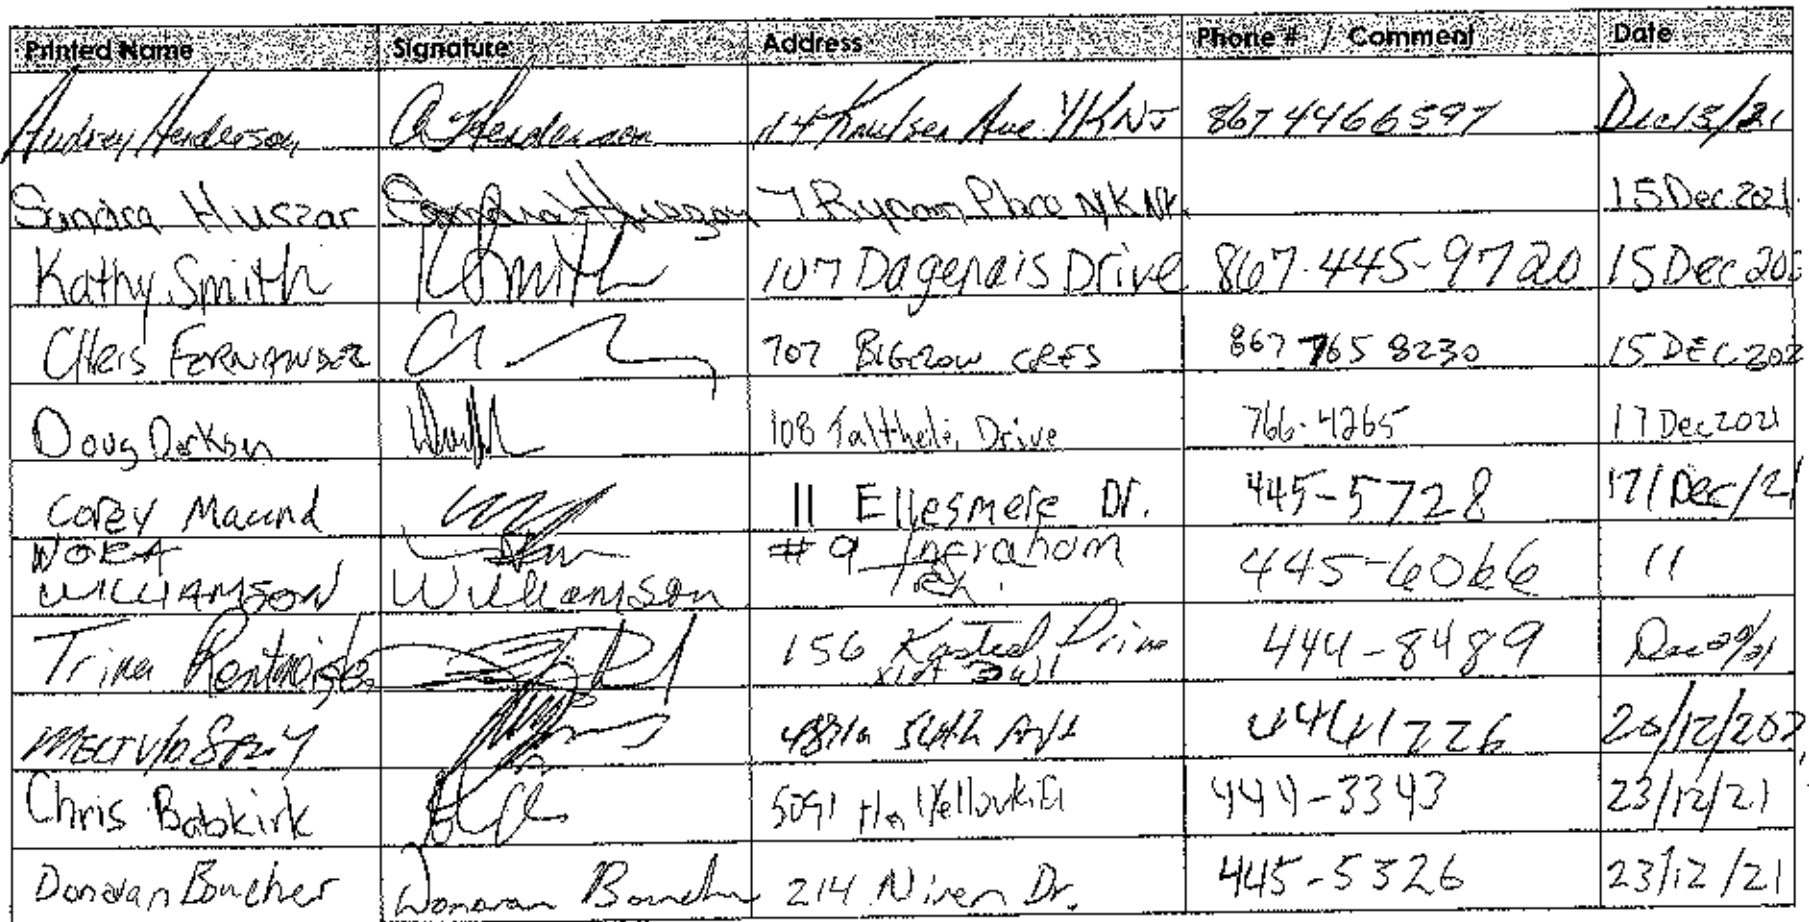 Printed Name Signature Address Phone # / Comment Date
Audrey Henderson A Henderson 14 Knutsen Ave YKNT 867 4466597 Dec 15/21
Sandra Huszar Sandra Huszar 7 Rycon Place YK NT. 15 Dec. 2021.
Kathy Smith K Smith 107 Dagenais Drive 867-445-9720 15 Dec 202
CHRIS FERNANDEZ 707 BIGELOW CRES 867 765 8230 15 DEC 202
Doug 108 Taltheli Drive 766-4265 17 Dec 2021
Corey Maund 11 Ellesmere Dr. 445-5728 17/Dec/21
NORA # 9 Ingraham
WILLIAMSON Williamson 445-6066 11
Trina 156 Drive 444-8489
4441226 20/12/202
Chris Babkirk 5091 444-3343 23/12/21
Donovan Boucher Donovan Boucher 214 Niven Dr. 445-5326 23/12/21